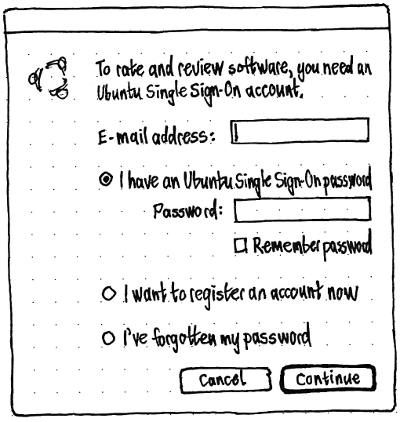 To rate and review software, you need an
Ubuntu Single Sign-On account.
E-mail address:
I have an Ubuntu Single Sign-On password
Password:
Remember password
I want to register an account now
I've forgotten my password
Cancel
Continue